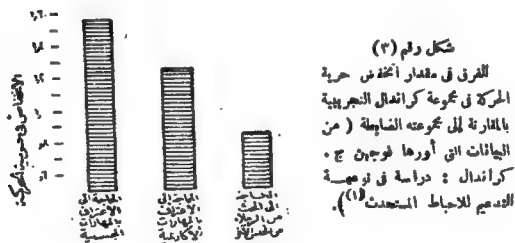 شكل رقم (٣)
للفرق فى مقدار انخفض حرية
الحركة فى مجموعة كراندال التجريبية
بالمقارنة إلى مجموعته الضابطة ( من
البيانات التى أوردها فوجين ج .
كراندال : دراسة فى توجهــة
للتدعيم للاحباط المستحدث(١)).
الانخفاض فى حرية الحركة
الحاجة إلى
الاعتراف
بالمهارات
الجسمية
الحاجة إلى
الاعتراف
بالمهارات
الأكاديمية
الحاجة
إلى الحب
من الزملاء
من الجنس الآخر